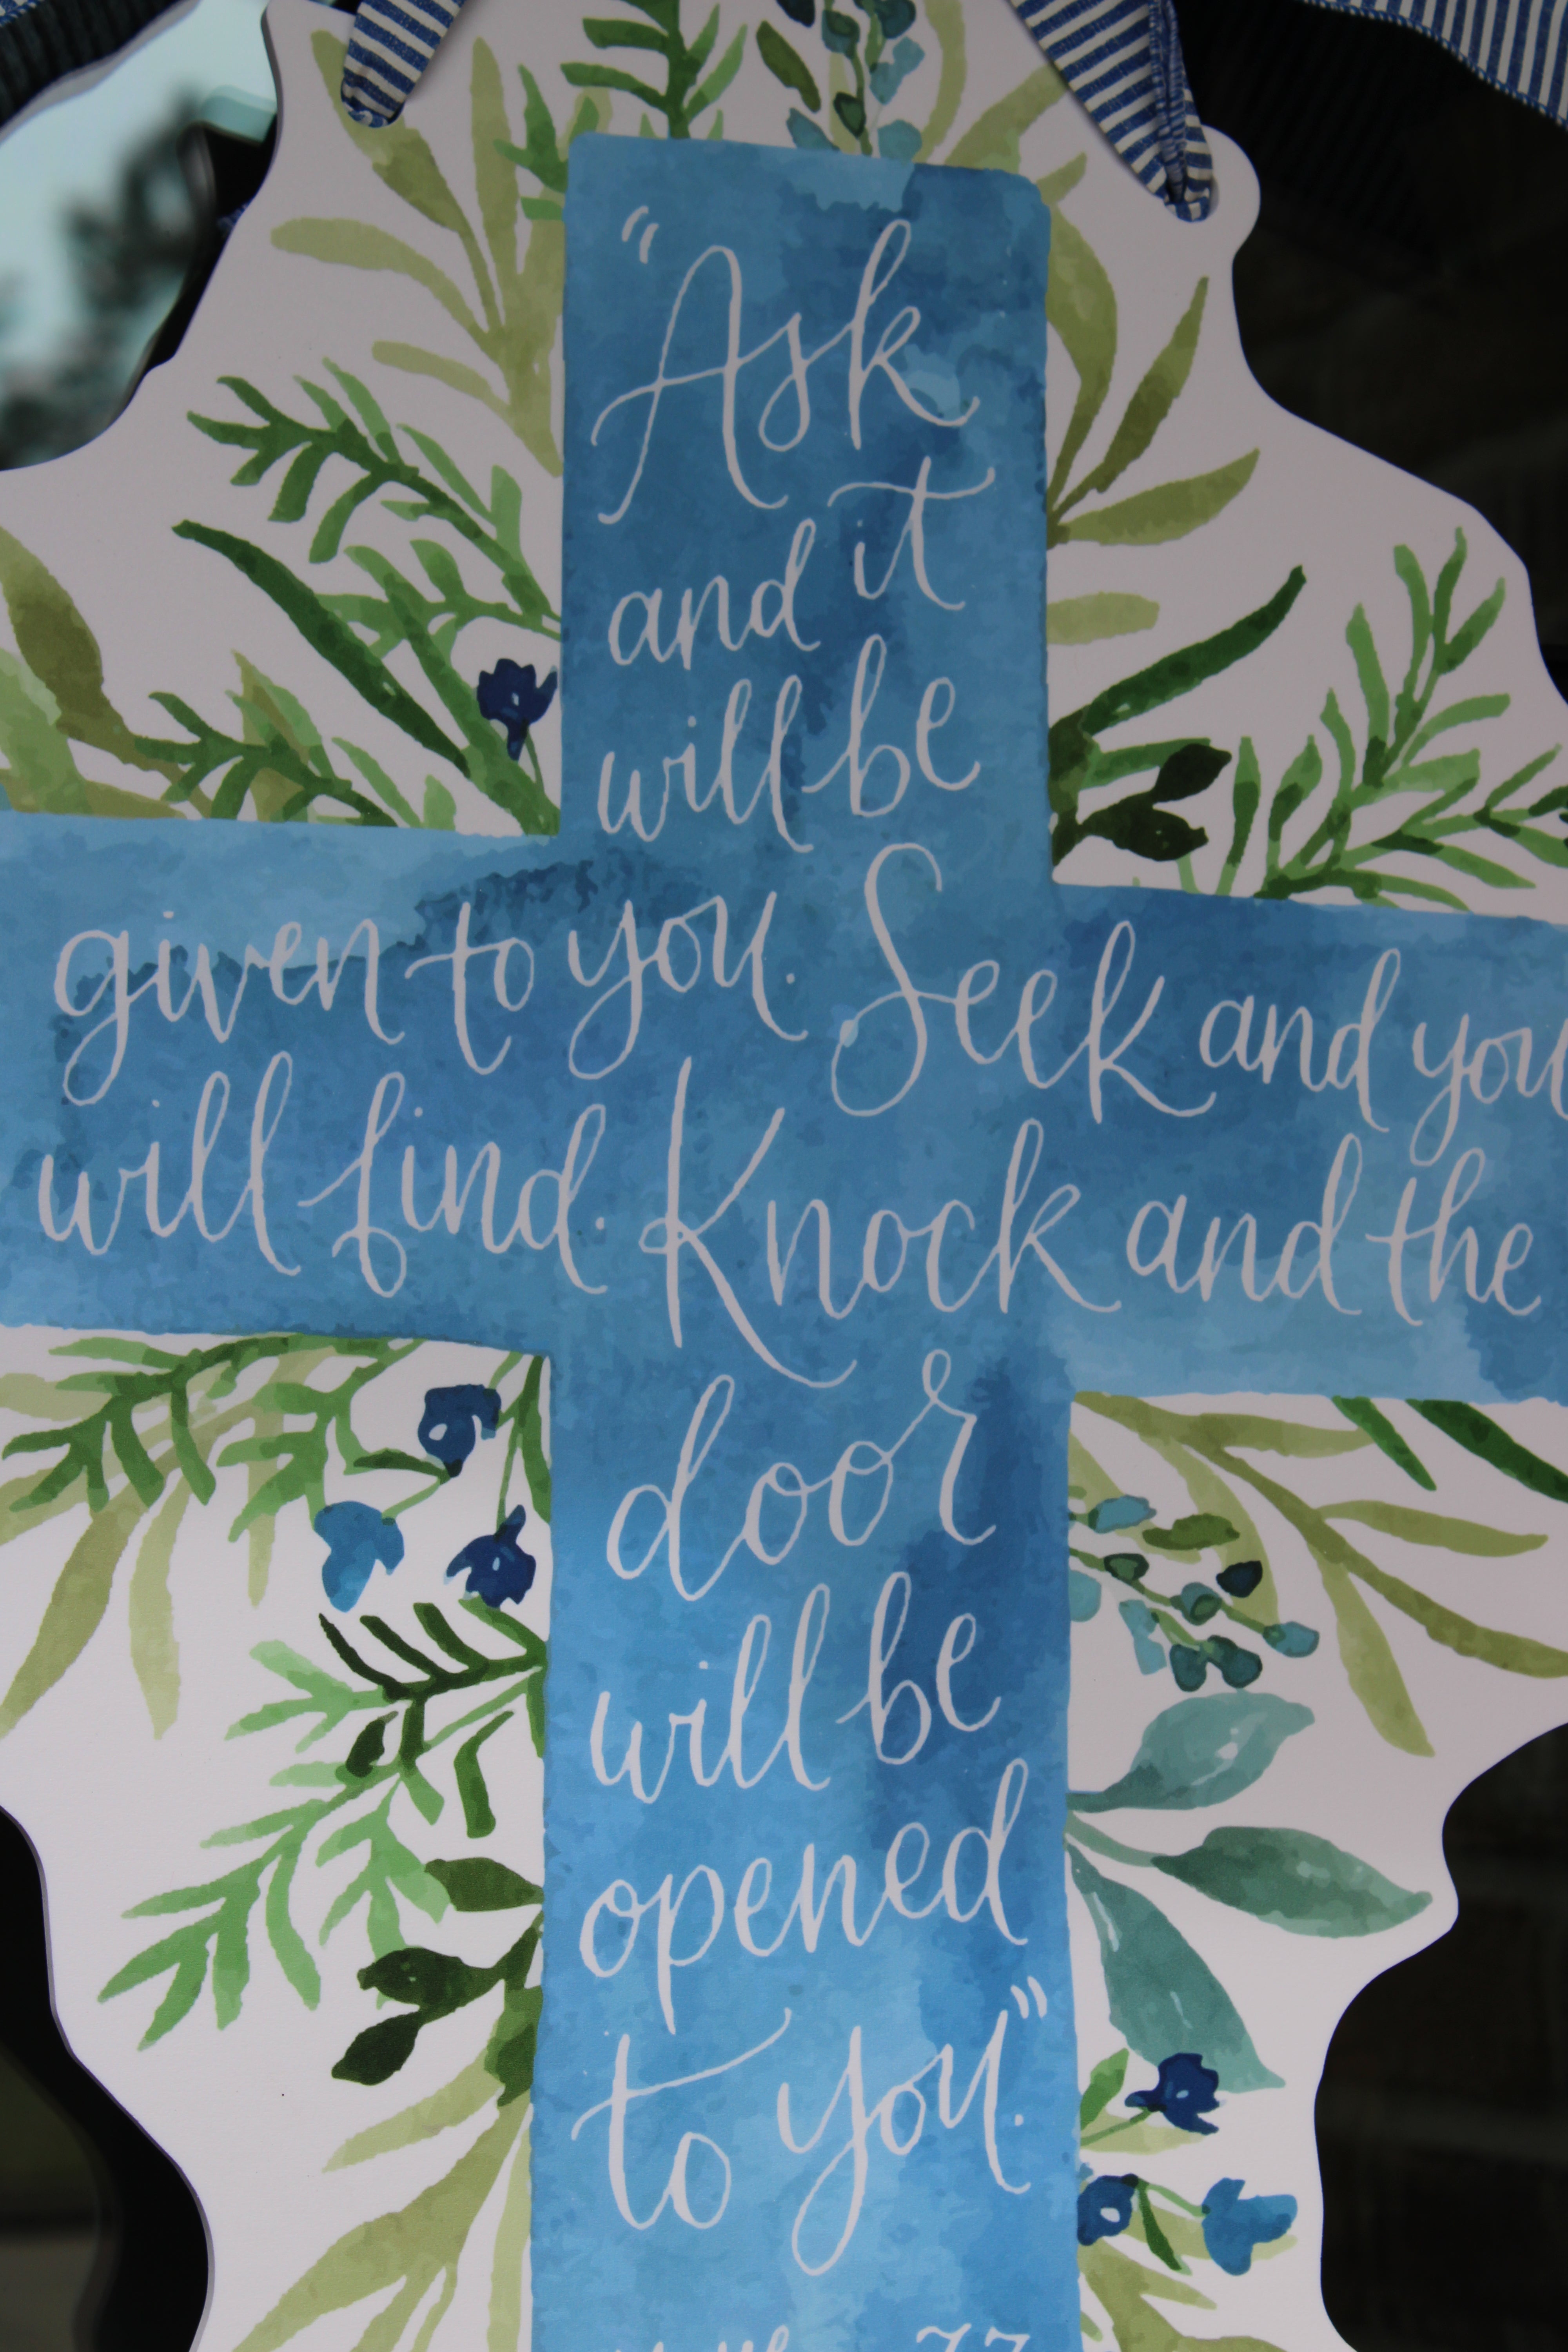 "Ask
and it
will be
given to you. Seek and you
will find. Knock and the
door
will be
opened
to you."